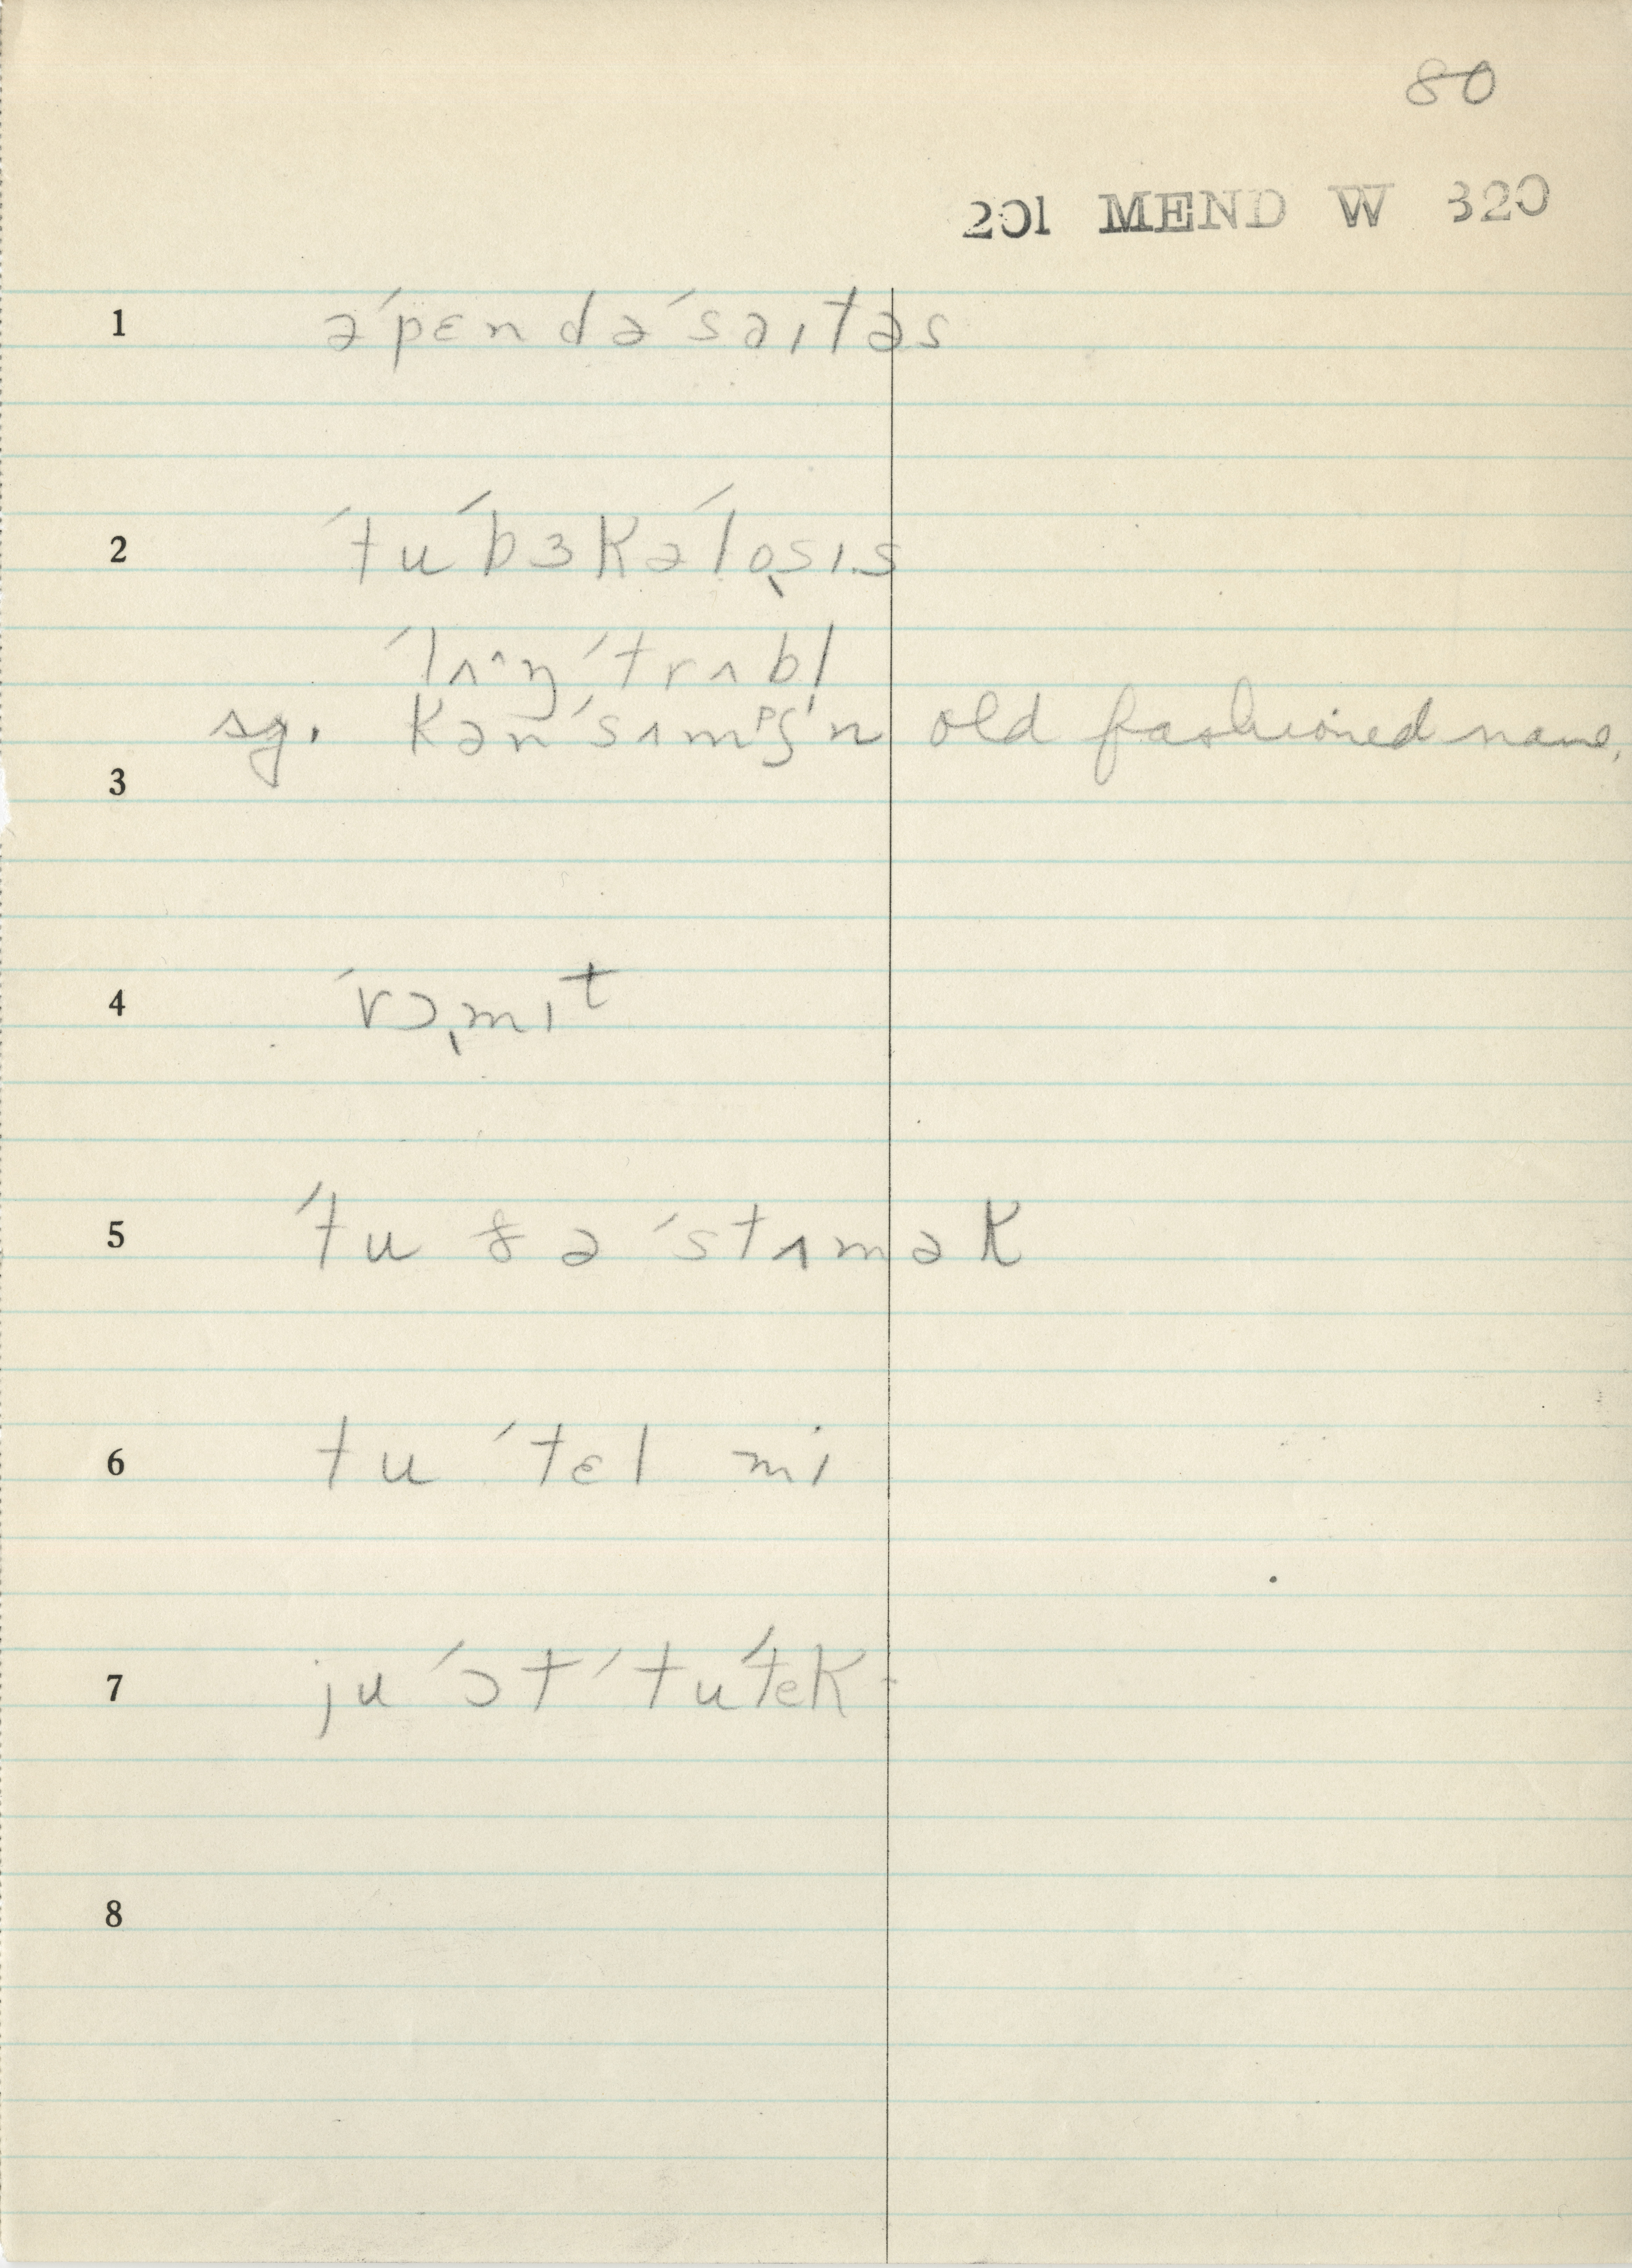 80
201 MEND W 320
1 əˈpɛndəˈsaɪtəs
2 ˈtuˈbɜkəˈlo̖sɪs
ˈlʌ^ŋˈtrʌbl̩
sg. kənˈsʌmᵖʃn̩ old fashioned name.
3
4 ˈvɔ̖mɪᵗ
5 ˈtu ðə ˈstʌmək
6 tu ˈtɛl mi
7 ju ˈɔtˈtuˈtek
8